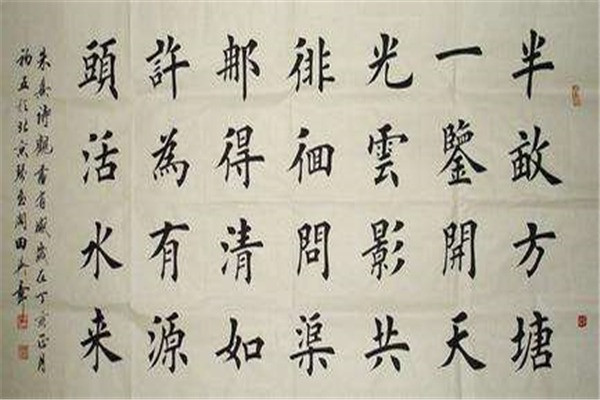 半畝方塘
一鑒開天
光雲影共
徘徊問渠
那得清如
許為有源
頭活水来
朱熹詩觀書有感歲在丁亥正月
初五於北京閣田書